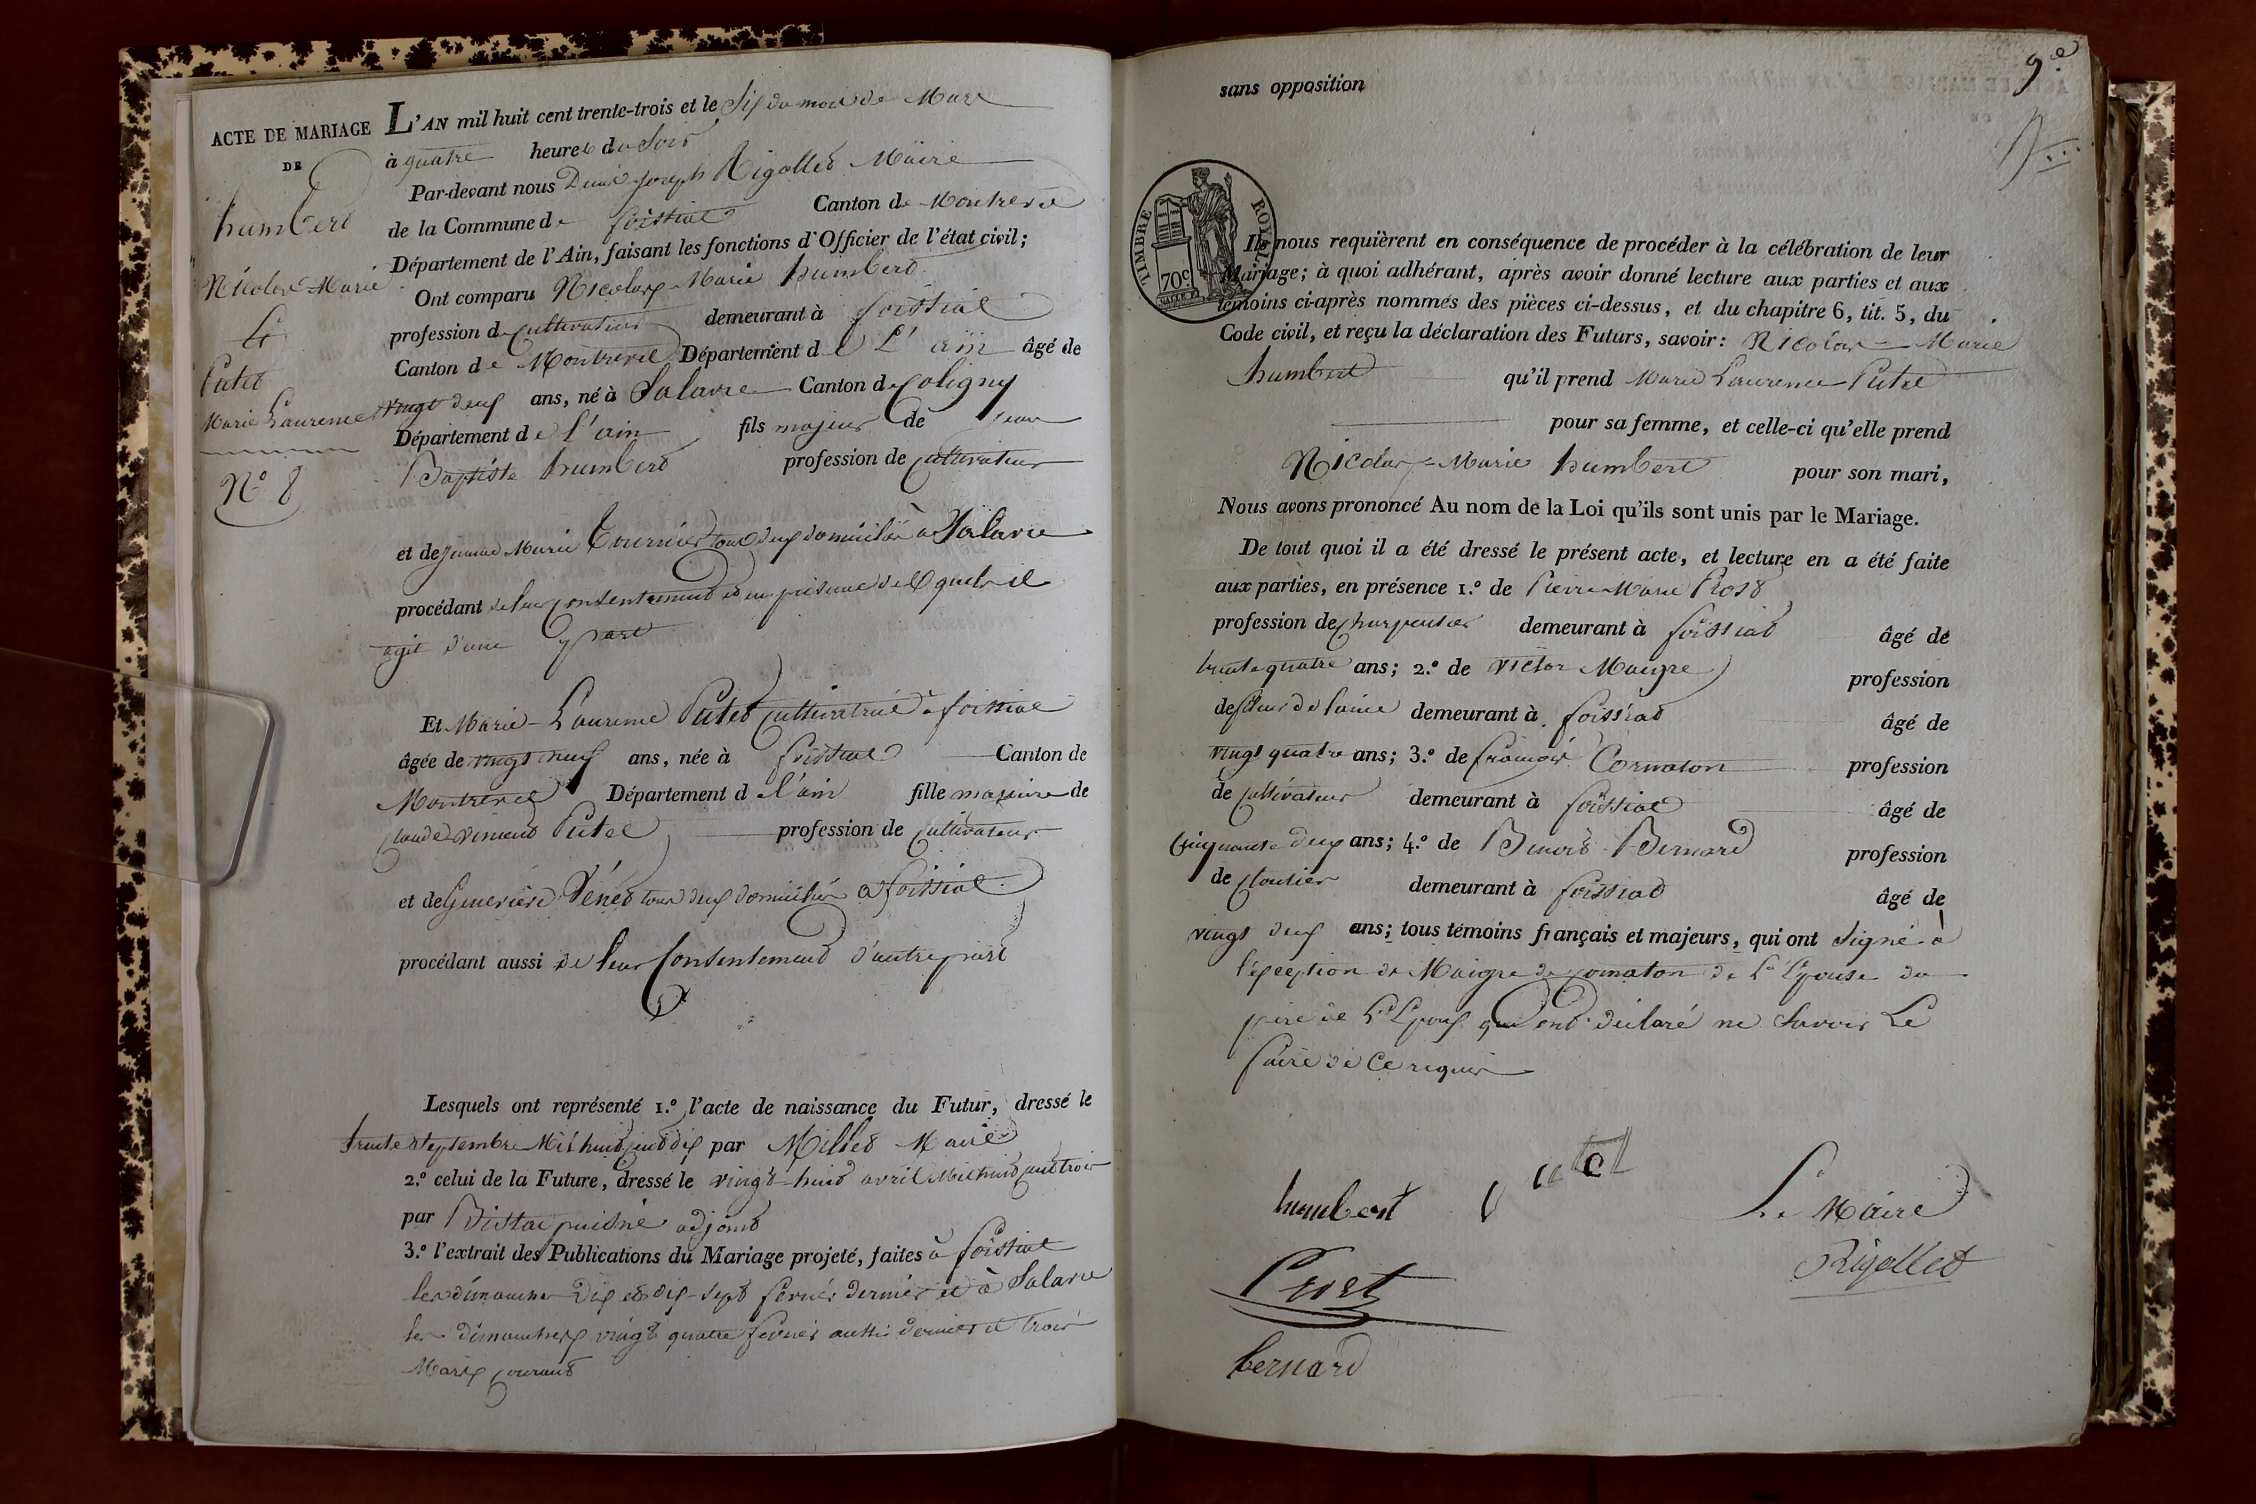 ACTE DE MARIAGE
DE
humbert
Nicolas Marie
Et
Putet
Marie Laurence
N.° 8
L'AN mil huit cent trente-trois et le Six du mois de Mars
à quatre heures du Soir
Par-devant nous Denis Joseph Rigollet Maire
de la Commune de foissiat Canton de Montrevel
Département de l'Ain, faisant les fonctions d'Officier de l'état civil;
Ont comparu Nicolas Marie humbert
profession de Cultivateur demeurant à foissiat
Canton de Montrevel Département de L'ain âgé de
vingt deux ans, né à Salavre Canton de Coligny
Département de l'ain fils majeur de jean
Baptiste humbert profession de Cultivateur
et de jeanne Marie Tournier tous deux domiciliés à Salavre
procédant de leur Consentement et en présence de
agit d'une part
Et Marie Laurence Putet Cultivatrice à foissiat
âgée de vingt neuf ans, née à foissiat Canton de
Montrevel Département de l'ain fille majeure de
Claude Vincent Putet profession de Cultivateur
et de Genevieve Vénet tous deux domiciliés à foissiat
procédant aussi de leur Consentement d'autre part
Lesquels ont représenté 1.° l'acte de naissance du Futur, dressé le
trente Septembre Mil huit cent dix par Millet Maire
2.° celui de la Future, dressé le vingt huit avril Mil huit cent trois
par puisné adjoint
3.° l'extrait des Publications du Mariage projeté, faites à foissiat
les dimanches Dix et dix-sept fevrier dernier et à Salavre
les dimanches vingt quatre fevrier aussi dernier et trois
Mars Courant
sans opposition
9.e
TIMBRE ROYAL
70c.
Ils nous requièrent en conséquence de procéder à la célébration de leur
Mariage; à quoi adhérant, après avoir donné lecture aux parties et aux
témoins ci-après nommés des pièces ci-dessus, et du chapitre 6, tit. 5, du
Code civil, et reçu la déclaration des Futurs, savoir: Nicolas Marie
humbert qu'il prend Marie Laurence Putet
pour sa femme, et celle-ci qu'elle prend
Nicolas Marie humbert pour son mari,
Nous avons prononcé Au nom de la Loi qu'ils sont unis par le Mariage.
De tout quoi il a été dressé le présent acte, et lecture en a été faite
aux parties, en présence 1.° de Pierre Marie Prost
profession de Charpentier demeurant à foissiat âgé de
trente quatre ans; 2.° de Victor Maigre profession
de fileur de laine demeurant à foissiat âgé de
vingt quatre ans; 3.° de françois Cornaton profession
de Cultivateur demeurant à foissiat âgé de
Cinquante deux ans; 4.° de Benoit Bernard profession
de Cloutier demeurant à foissiat âgé de
vingt deux ans; tous témoins français et majeurs, qui ont Signé à
l'exception de Maigre de Cornaton de L'Epouse du
père de L'Epoux qui ont déclaré ne Savoir Le
faire de Ce requis
humbert
Le Maire
Rigollet
bernard